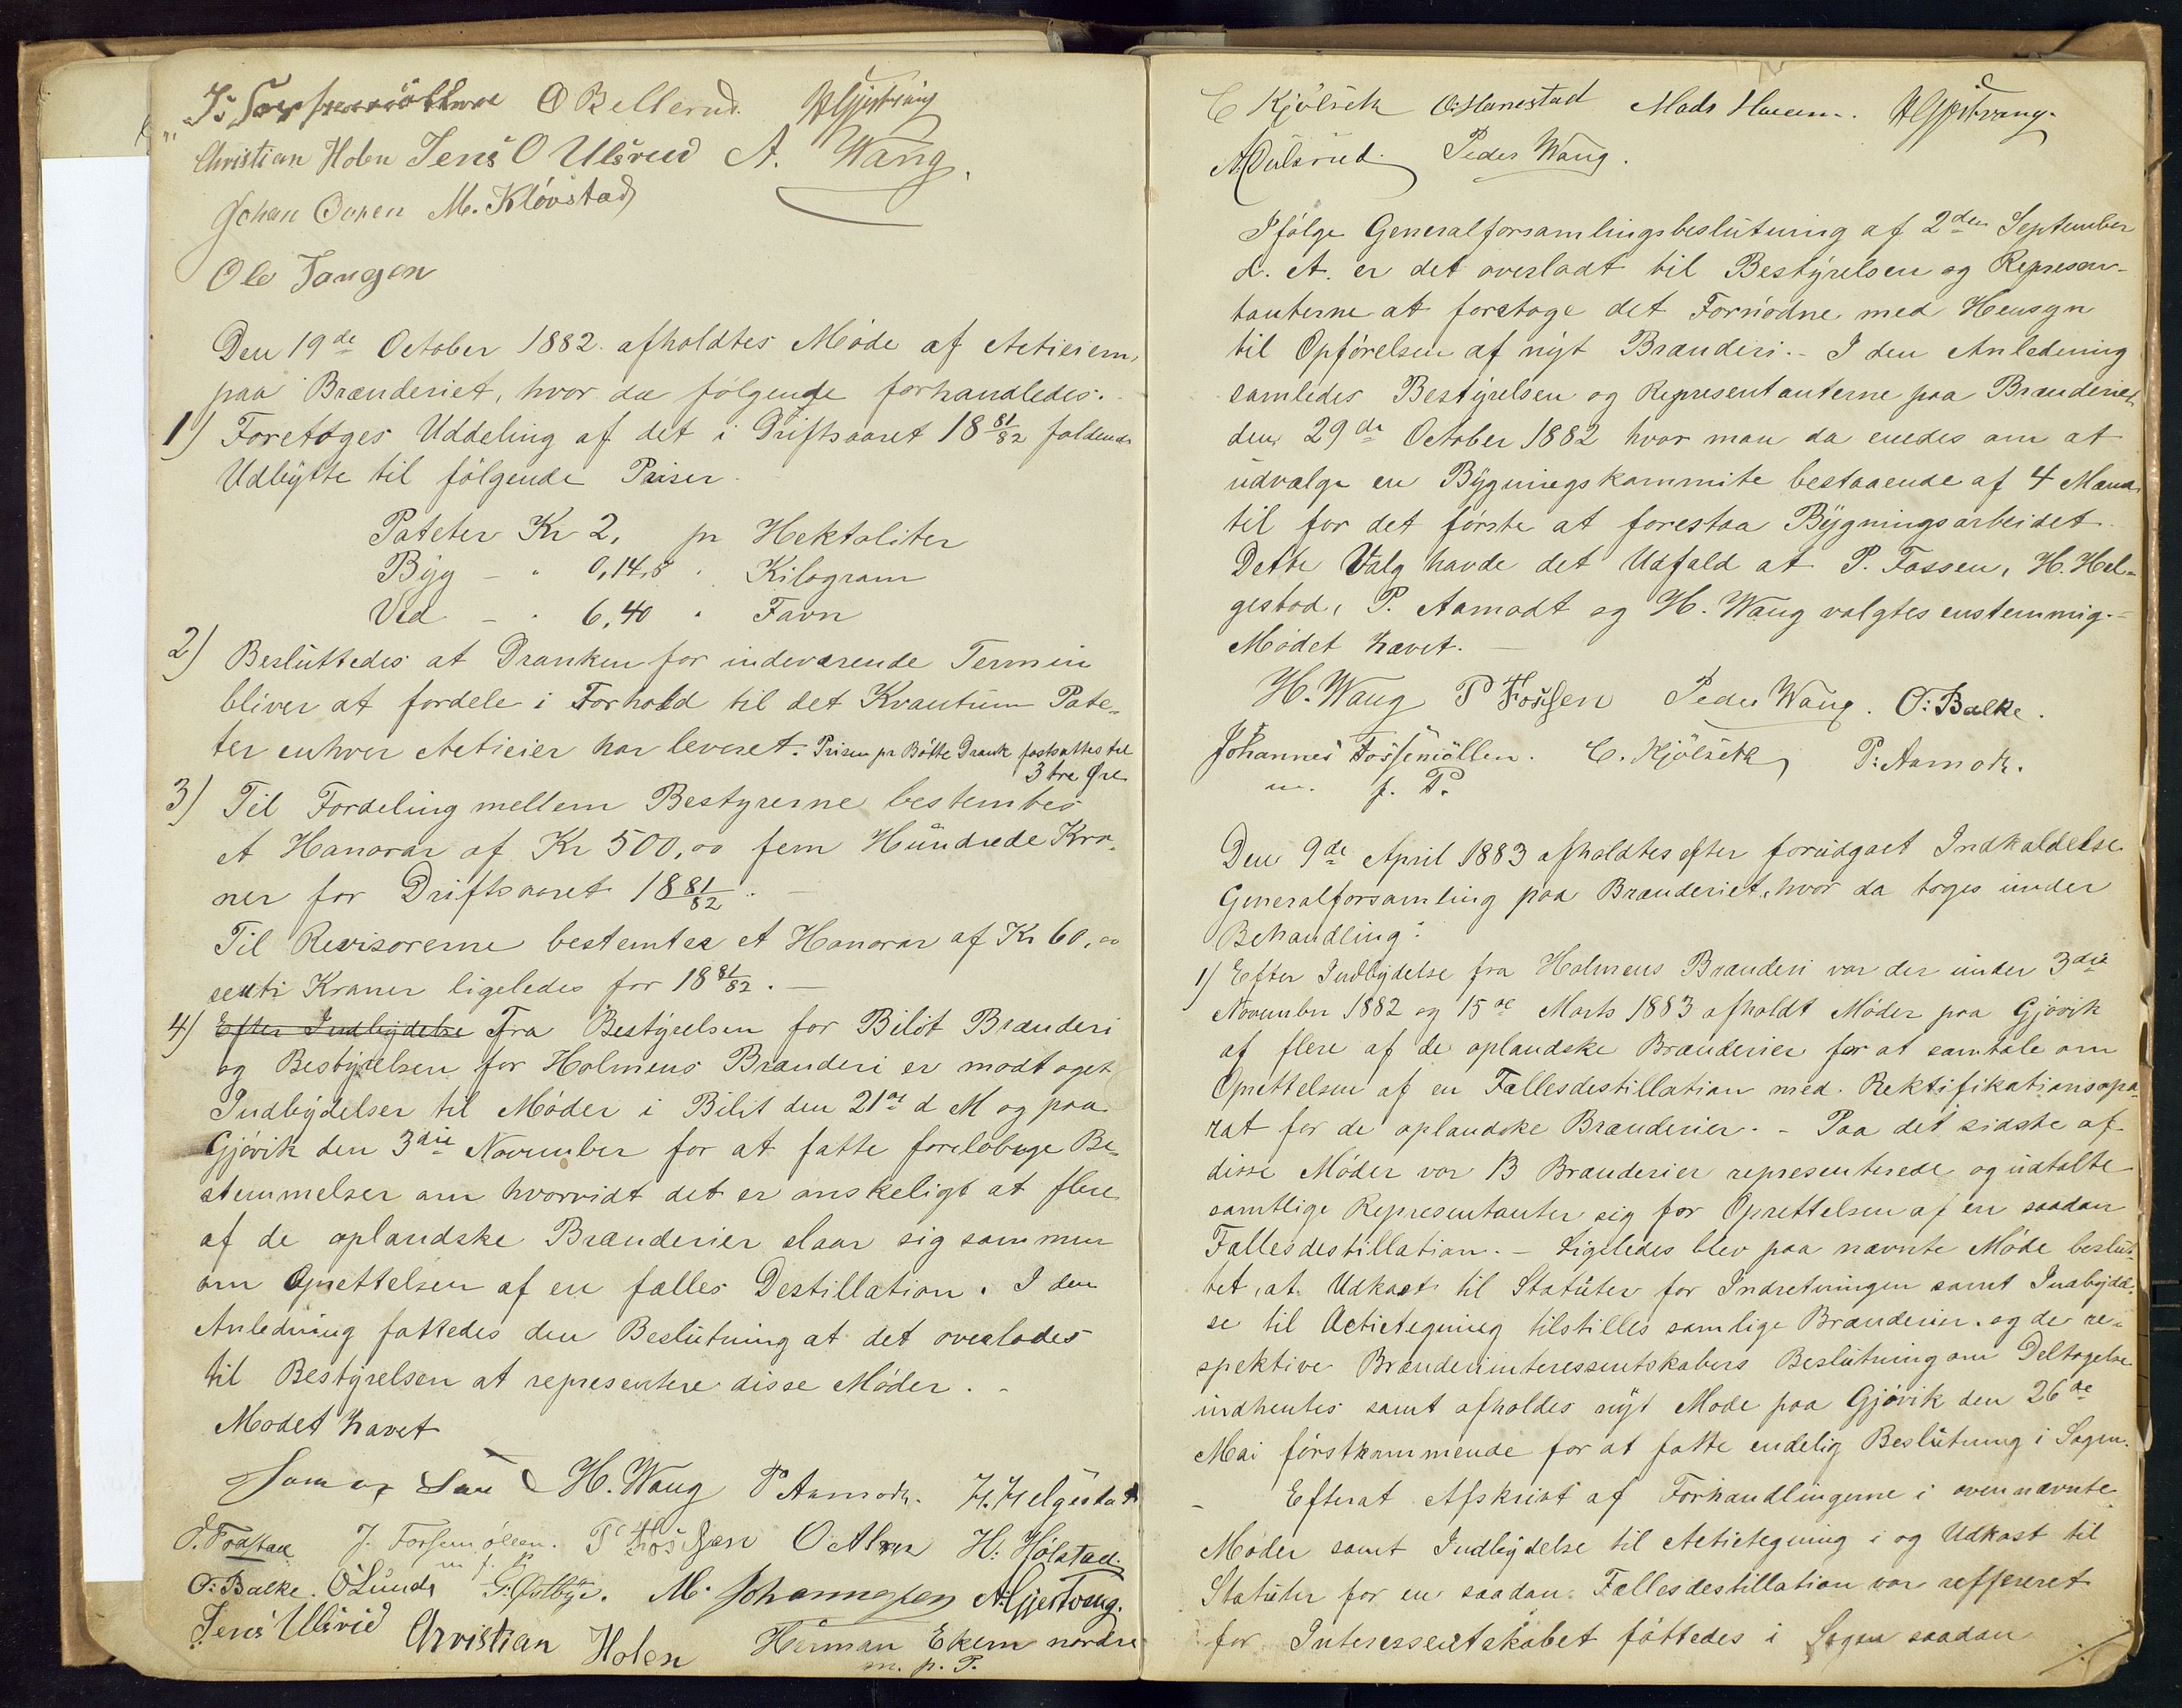 O Bellerud. AGjestvang
Christian Holen Jens O Ulsrud A. Wang.
Johan M. Kløvstad
Ole Tangen
Den 19de October 1882 afholdtes Møde af Actieiern,
paa Brænderiet, hvor da følgende forhandledes.
1) Foretoges Uddeling af det i Driftsaaret 18 81/82 faldende
Udbytte til følgende Priser.
Poteter Kr 2, pr Hektoliter
Byg - " 0,14,8 " Kilogram
Ved - " 6,40 " Favn
2) Besluttedes at Dranken for indeværende Termin
bliver at fordele i Forhold til det Kvantum Pote-
ter enhver Actieier har leveret. Prisen pr Bøtte Drank fastsattes til
3 tre Øre
3) Til Fordeling mellem Bestyrerne bestemtes
et Honorar af Kr 500,00 fem Hundrede Kro-
ner for Driftsaaret 18 81/82. -
Til Revisorerne bestemtes et Honorar af Kr 60,00
sexti Kroner ligeledes for 18 81/82. -
4) Efter Indbydelse Fra Bestyrelsen for Bilit Brænderi
og Bestyrelsen for Holmens Brænderi er modtaget
Indbydelser til Møder i Bilit den 21de d M og paa
Gjøvik den 3die November for at fatte foreløbige Be-
stemmelser om hvorvidt det er ønskeligt at flere
af de oplandske Brænderier slaar sig sammen
om Oprettelsen af en fælles Destillation. I den
Anledning fattedes den Beslutning at det overlodes
til Bestyrelsen at representere disse Møder. -
Mødet hævet
H. Wang P Aamodt. H. Helgestad
J. Fossemøllen. P Fossen O H. Hølstad.
m f P
O. Balke. O Lunde M. Johannessen A. Gjestvang.
Jens Ulsrud Christian Holen Herman Ekern nordre
m. p. P.
C Kjølseth O. Hanestad Mads AGjestvang.
Peder Wang.
Ifølge Generalforsamlingsbeslutning af 2den September
d. A. er det overladt til Bestyrelsen og Represen-
tanterne at foretage det Fornødne med Hensyn
til Opførelsen af nyt Brænderi. - I den Anledning
samledes Bestyrelsen og Representanterne paa Brænderiet
den 29de October 1882 hvor man da enedes om at
udvælge en Bygningskommite bestaaende af 4 Mænd
til for det første at forestaa Bygningsarbeidet.
Dette Valg havde det Udfald at P. Fossen, H. Hel-
gestad, P. Aamodt og H. Wang valgtes enstemmig. -
Mødet hævet. -
H. Wang P Fossen Peder Wang. O. Balke.
Johannes Fossemøllen. C. Kjølseth P. Aamodt.
m. f. P.
Den 9de April 1883 afholdtes efter forudgaaet Indkaldelse
Generalforsamling paa Brænderiet, hvor da toges under
Behandling:
1) Efter Indbydelse fra Holmens Brænderi var der under 3die
November 1882 og 15de Marts 1883 afholdt Møder paa Gjøvik
af flere af de oplandske Brænderier for at samtale om
Oprettelsen af en Fællesdestillation med Rektifikationsapa-
rat for de oplandske Brænderier. - Paa det sidste af
disse Møder var 13 Brænderier representerede og udtalte
samtlige Representanter sig for Oprettelsen af en saadan
Fællesdestillation. - Ligeledes blev paa nævnte Møde beslut-
tet, at Udkast til Statuter for Indretningen samt Indbydel-
se til Actietegning tilstilles samlige Brænderier og de re-
spektive Brænderiinteressentskabers Beslutning om Deltagelse
indhentes samt afholdes nyt Møde paa Gjøvik den 26de
Mai førstkommende for at fatte endelig Beslutning i Sagen.
- Efterat Afskrivt af Forhandlingerne i ovennævnte
Møder samt Indbydelse til Actietegning i og Udkast til
Statuter for en saadan Fællesdestillation var reffereret
for Interessentskabet fattedes i Sagen saadan